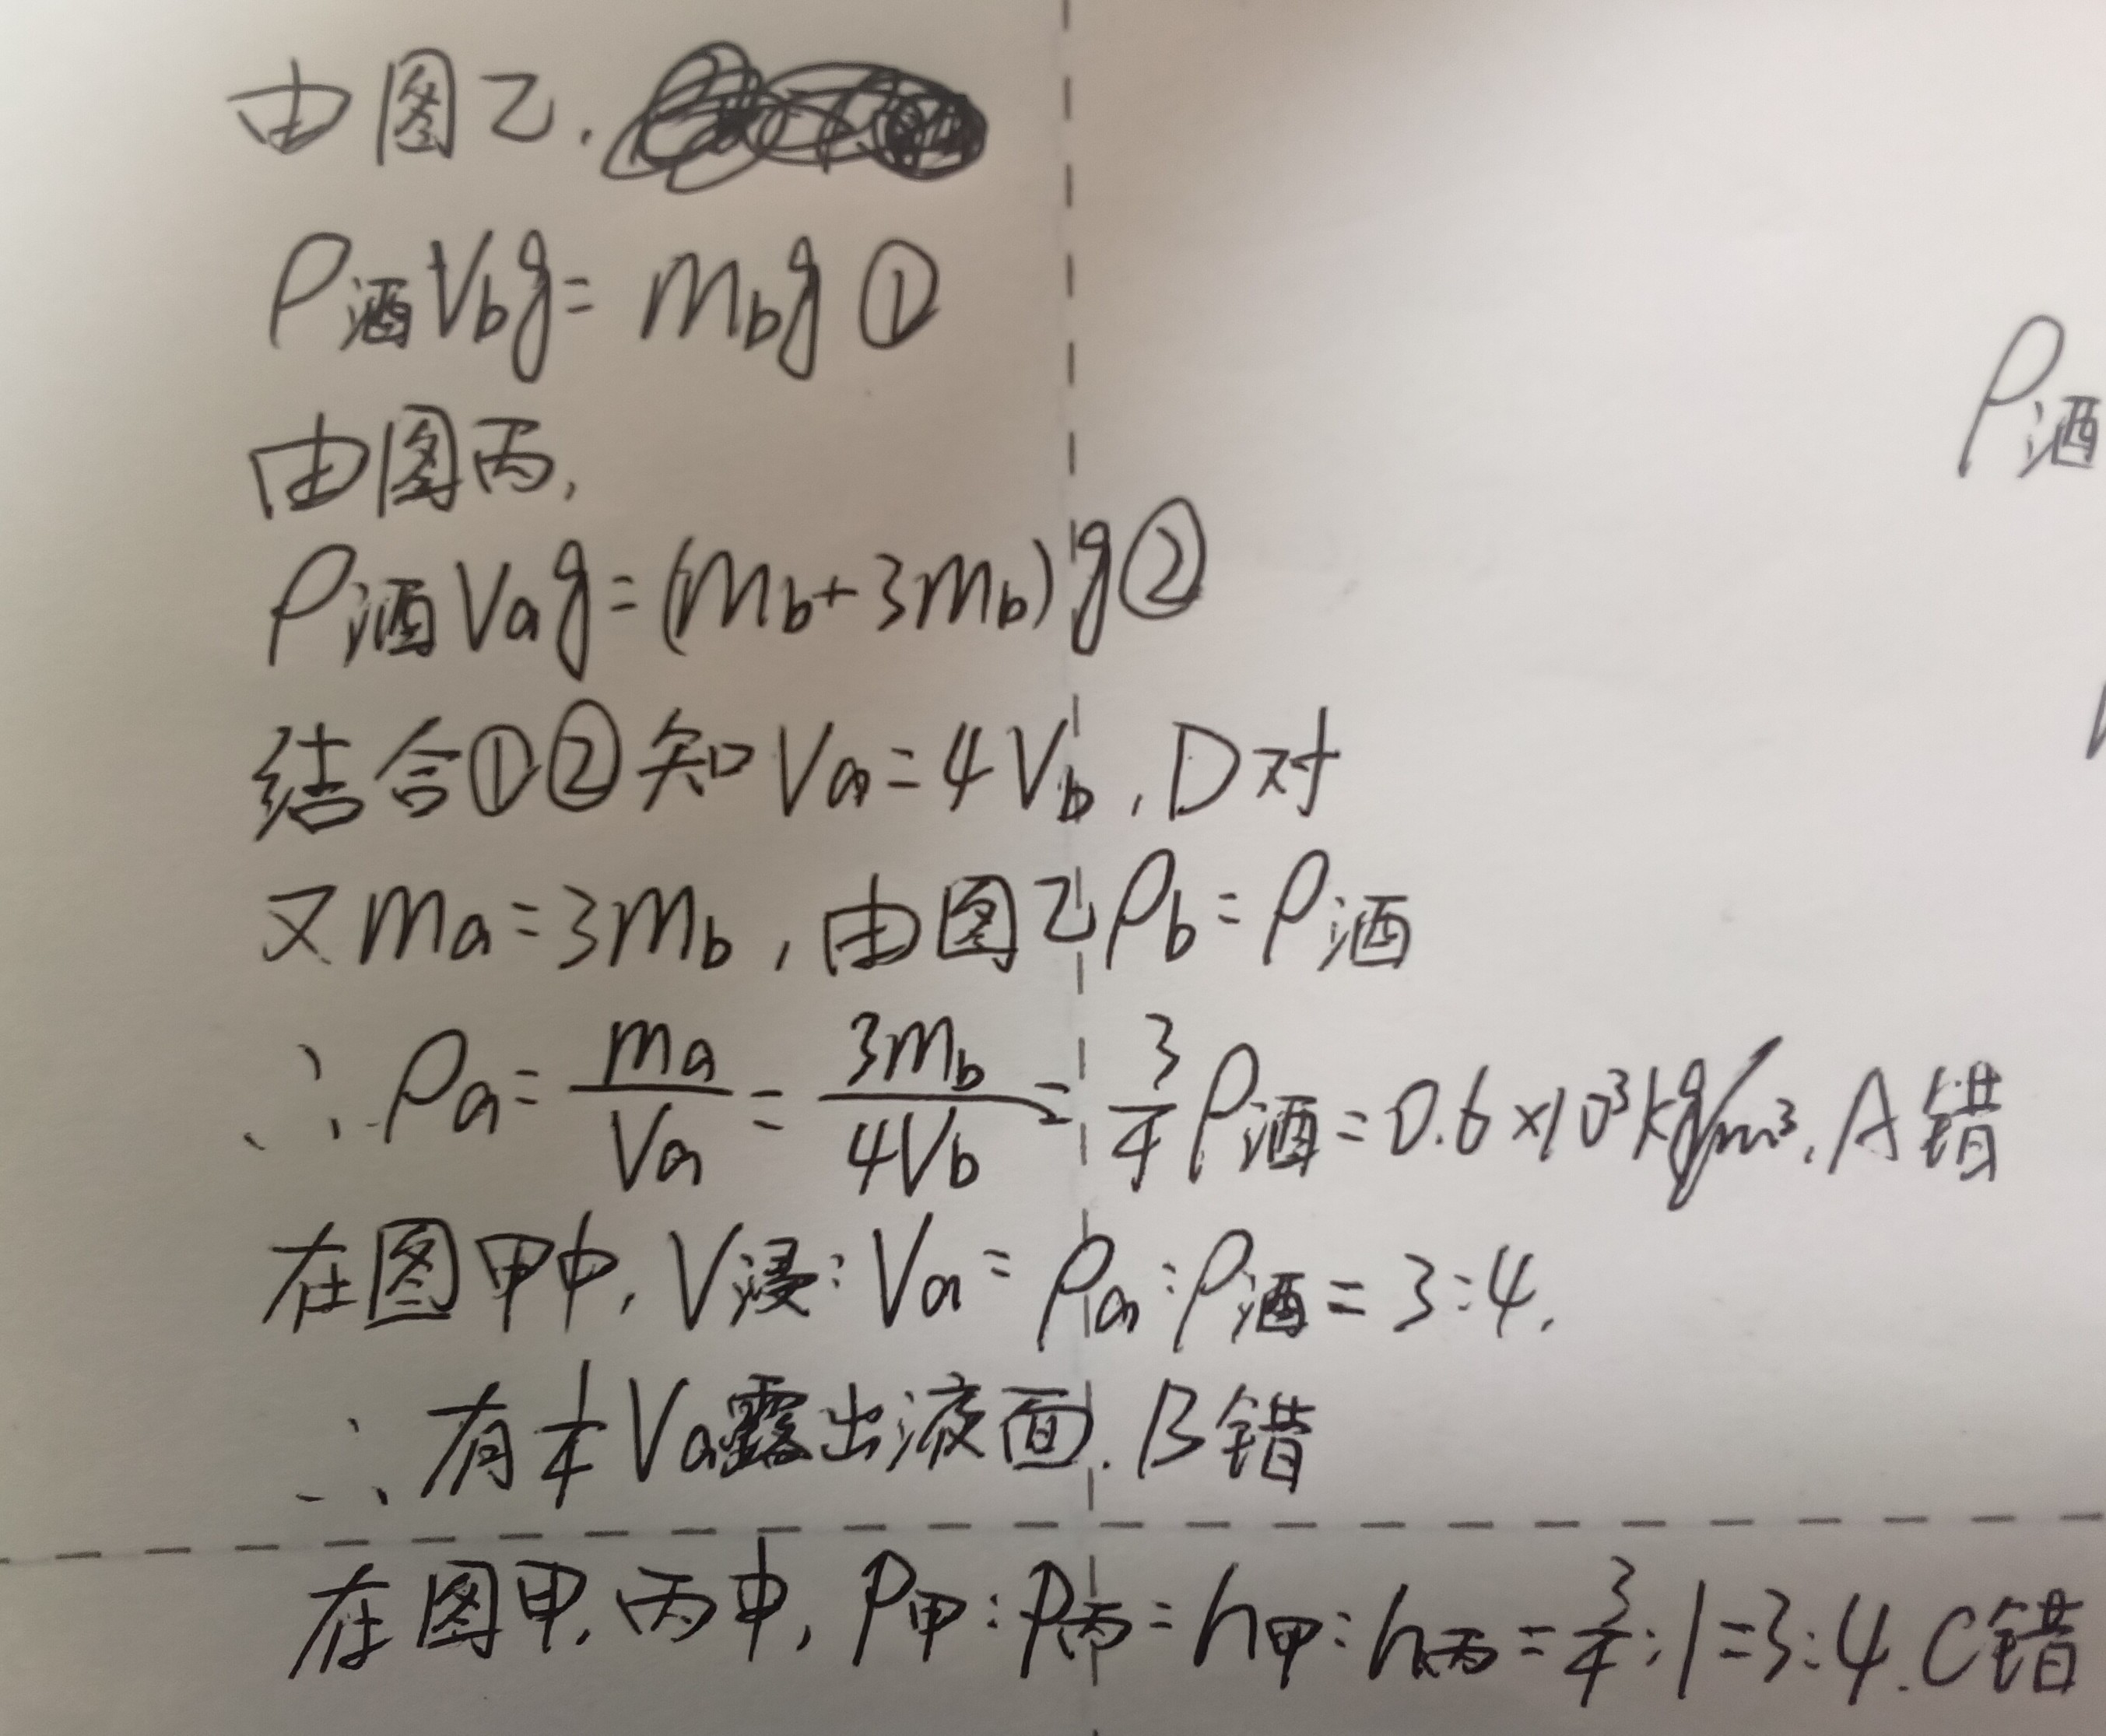 由图乙.
ρ酒Vbg=mbg①
由图丙,
ρ酒Vag=(mb+3mb)g②
结合①②知Va=4Vb,D对
又ma=3mb,由图乙ρb=ρ酒
∴ρa=ma/Va=3mb/4Vb=3/4ρ酒=0.6×10³kg/m³.A错
在图甲中,V浸:Va=ρa:ρ酒=3:4.
∴有1/4Va露出液面.B错
在图甲.丙中,P甲:P丙=h甲:h丙=3/4:1=3:4.C错
ρ酒